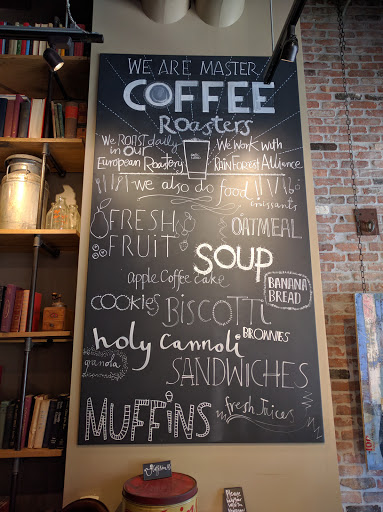 WE ARE MASTER
COFFEE
Roasters
We ROAST daily
in OUR
European Roastery
We Work with
RAINForest Alliance
we also do food
croissants
FRESH
FRUIT
OATMEAL
SOUP
apple Coffee Cake
BANANA
BREAD
COOKIES
BISCOTTI
BROWNIES
holy Cannoli
granola
SANDWICHES
MUFFINS
fresh Juices